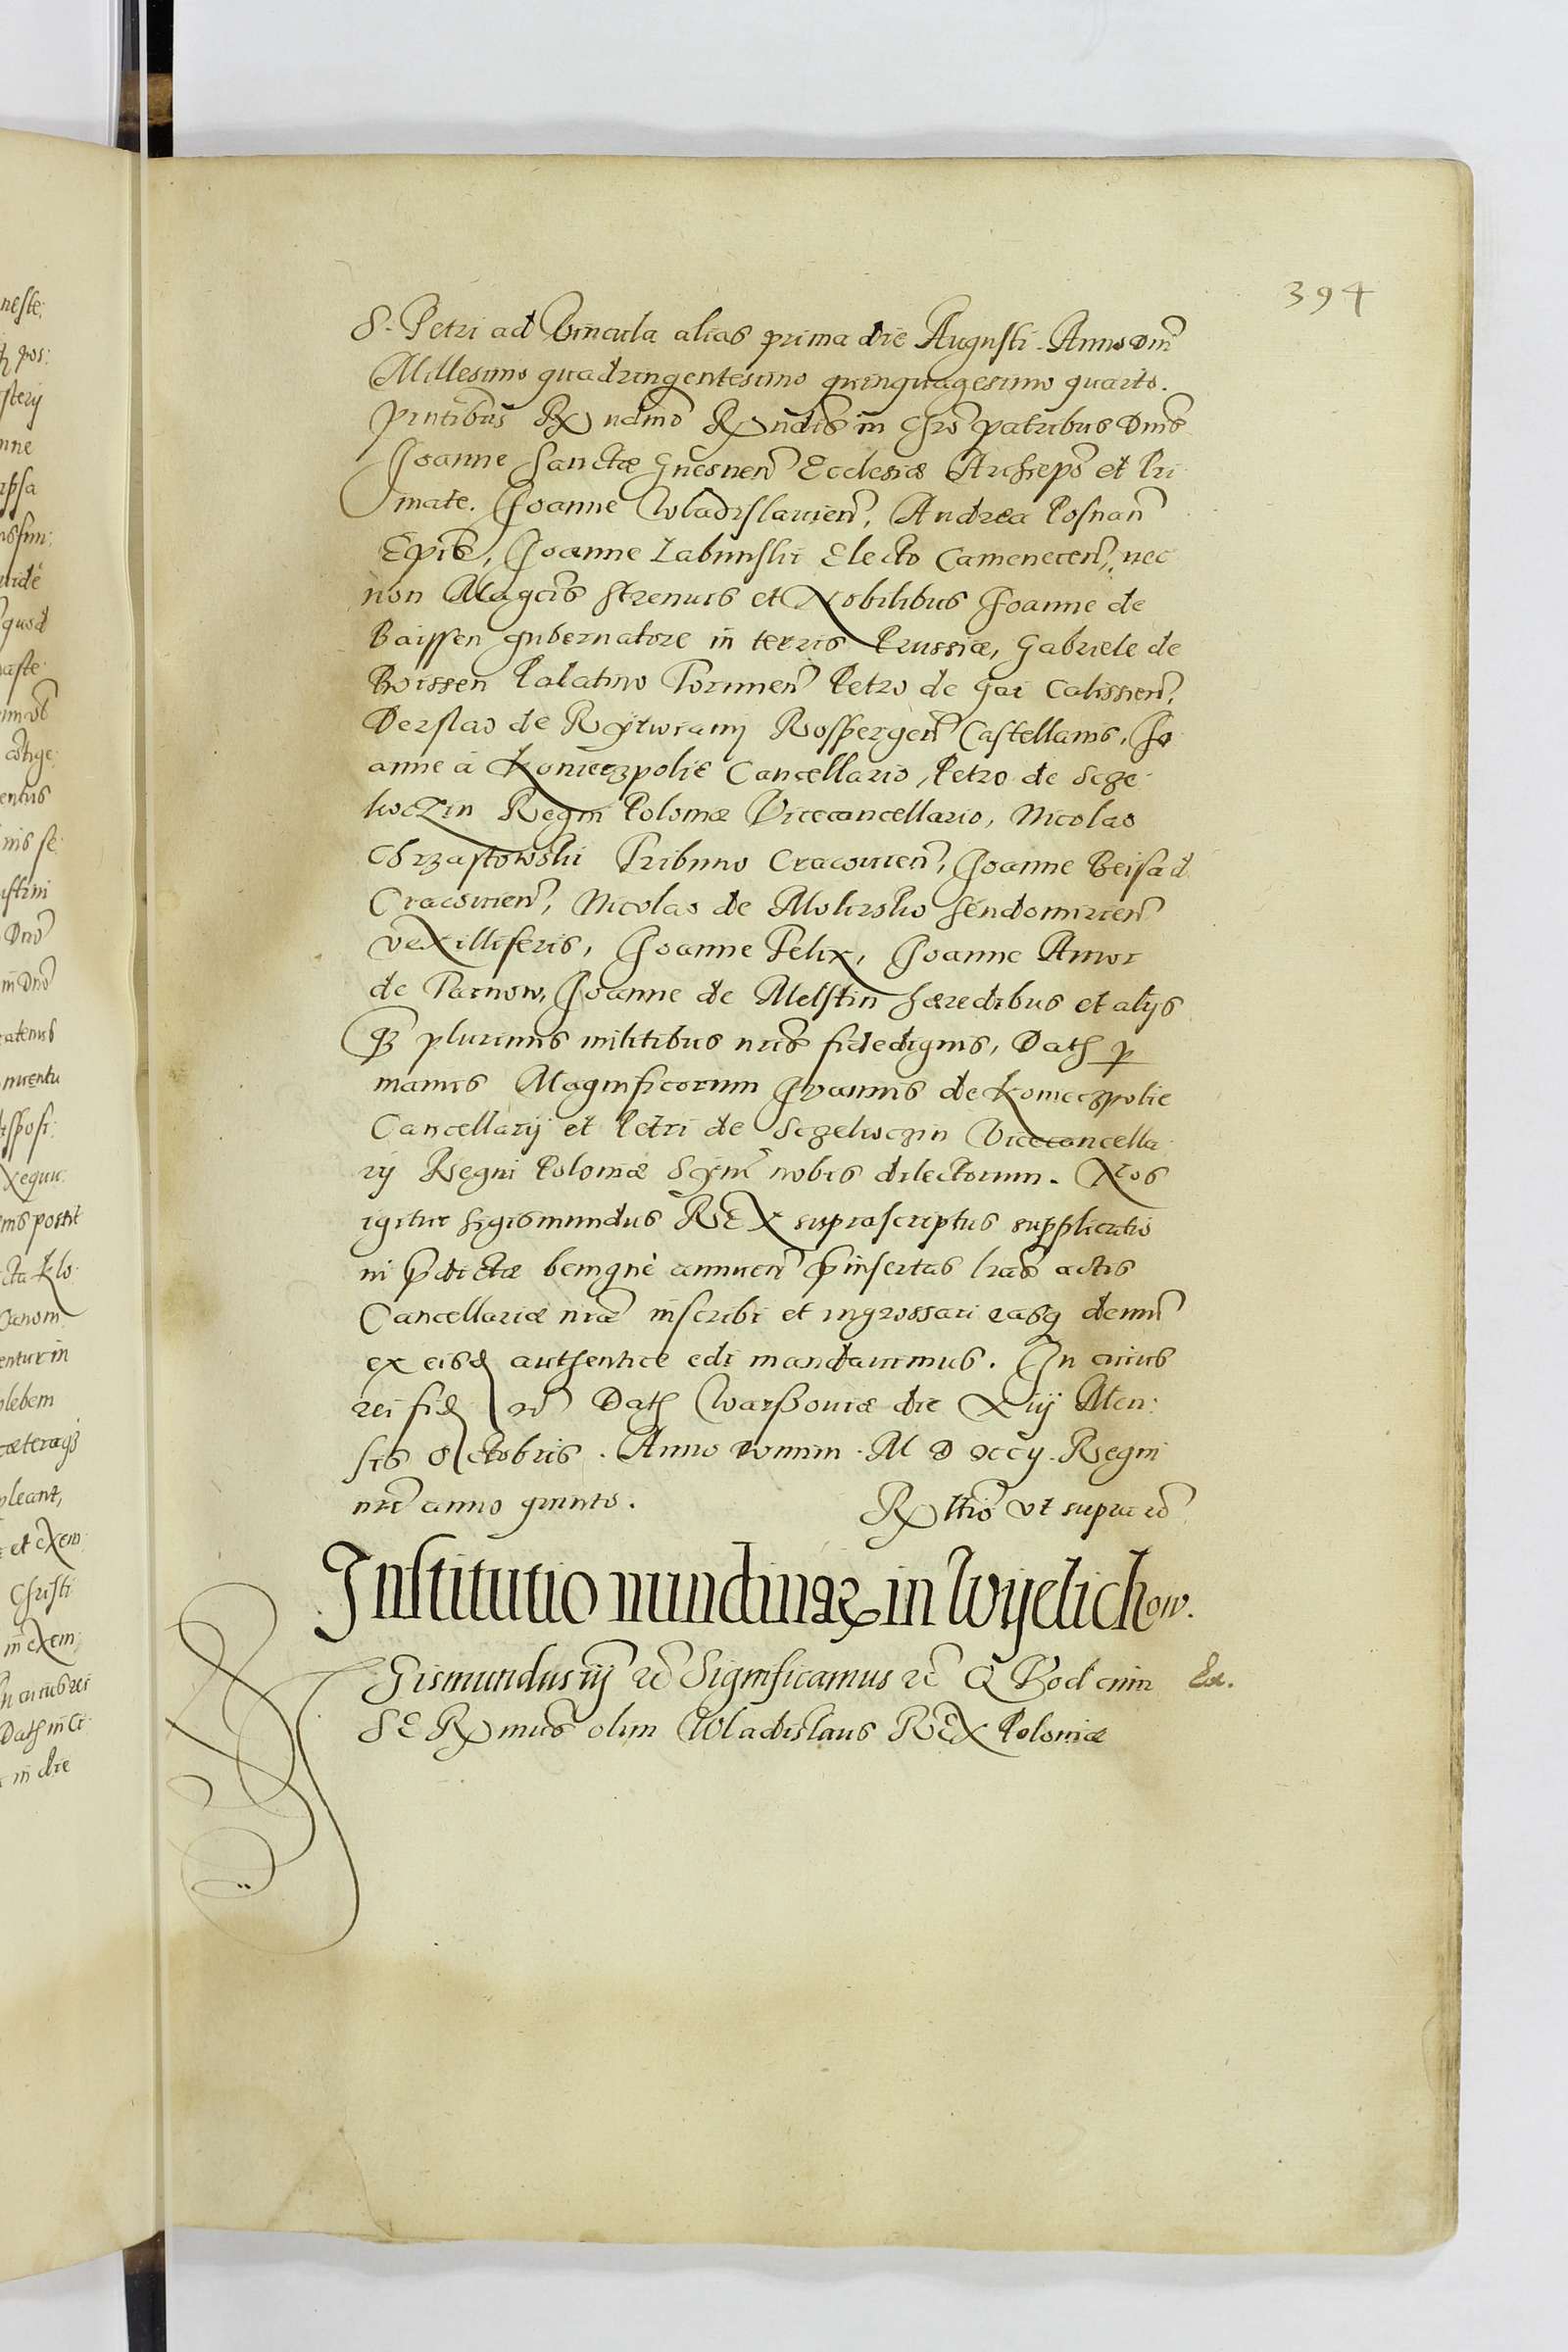 394
S. Petri ad Vincula alias prima die Augusti. Anno Dni
Millesimo quadringentesimo quinquagesimo quarto.
Pntibus Rndmo Rndis in Chro patribus Dnis
Joanne Sanctæ Gnesnen Ecclesiæ Archiepo et Pri
mate. Joanne Wladislauien, Andrea Posnan
Epis, Joanne Labunski Electo Camenecen, nec
non Magcis Strenuis et Nobilibus Joanne de
Baissen gubernatore in terris Prussiæ, Gabriele de
Boissen Palatino Torunen Petro de Gai Calissien,
Derslao de Rytwiany Rospergen Castellanis, Jo
anne à Konieczpolie Cancellario, Petro de Scze
koczin Regni Poloniæ Vicecancellario, Nicolao
Chrzastowski Tribuno Cracouien, Joanne Beisad
Cracouien, Nicolao de Mokrsko Sendomirien
vexilliferis, Joanne Felix, Joanne Amor
de Tarnow, Joanne de Melstin hæredibus et alijs
q3 plurimis militibus nris fidedignis, Dat p
manus Magnificorum Joannis de Konieczpolie
Cancellarij et Petri de Sczekoczin Vicecancella
rij Regni Poloniæ Sgnr nobis dilectorum. Nos
igitur Sigismundus REX suprascriptus supplicatio
ni pdictæ benignè annuen pinsertas lras actis
Cancellariæ nræ inscribi et ingrossari easq demu
ex eisd authenticè edi mandauimus. In cuius
rei fid rc Dat Warssouiæ die Xiij Men:
sis Octobris. Anno Domini. M D xcij. Regni
nri anno quinto.
Rltio vt supra rc
Institutio nundinar in Wijelichow.
Gismundus iij rc Significamus rc Quod cum Ex.
SERmus olim Wladislaus REX Poloniæ